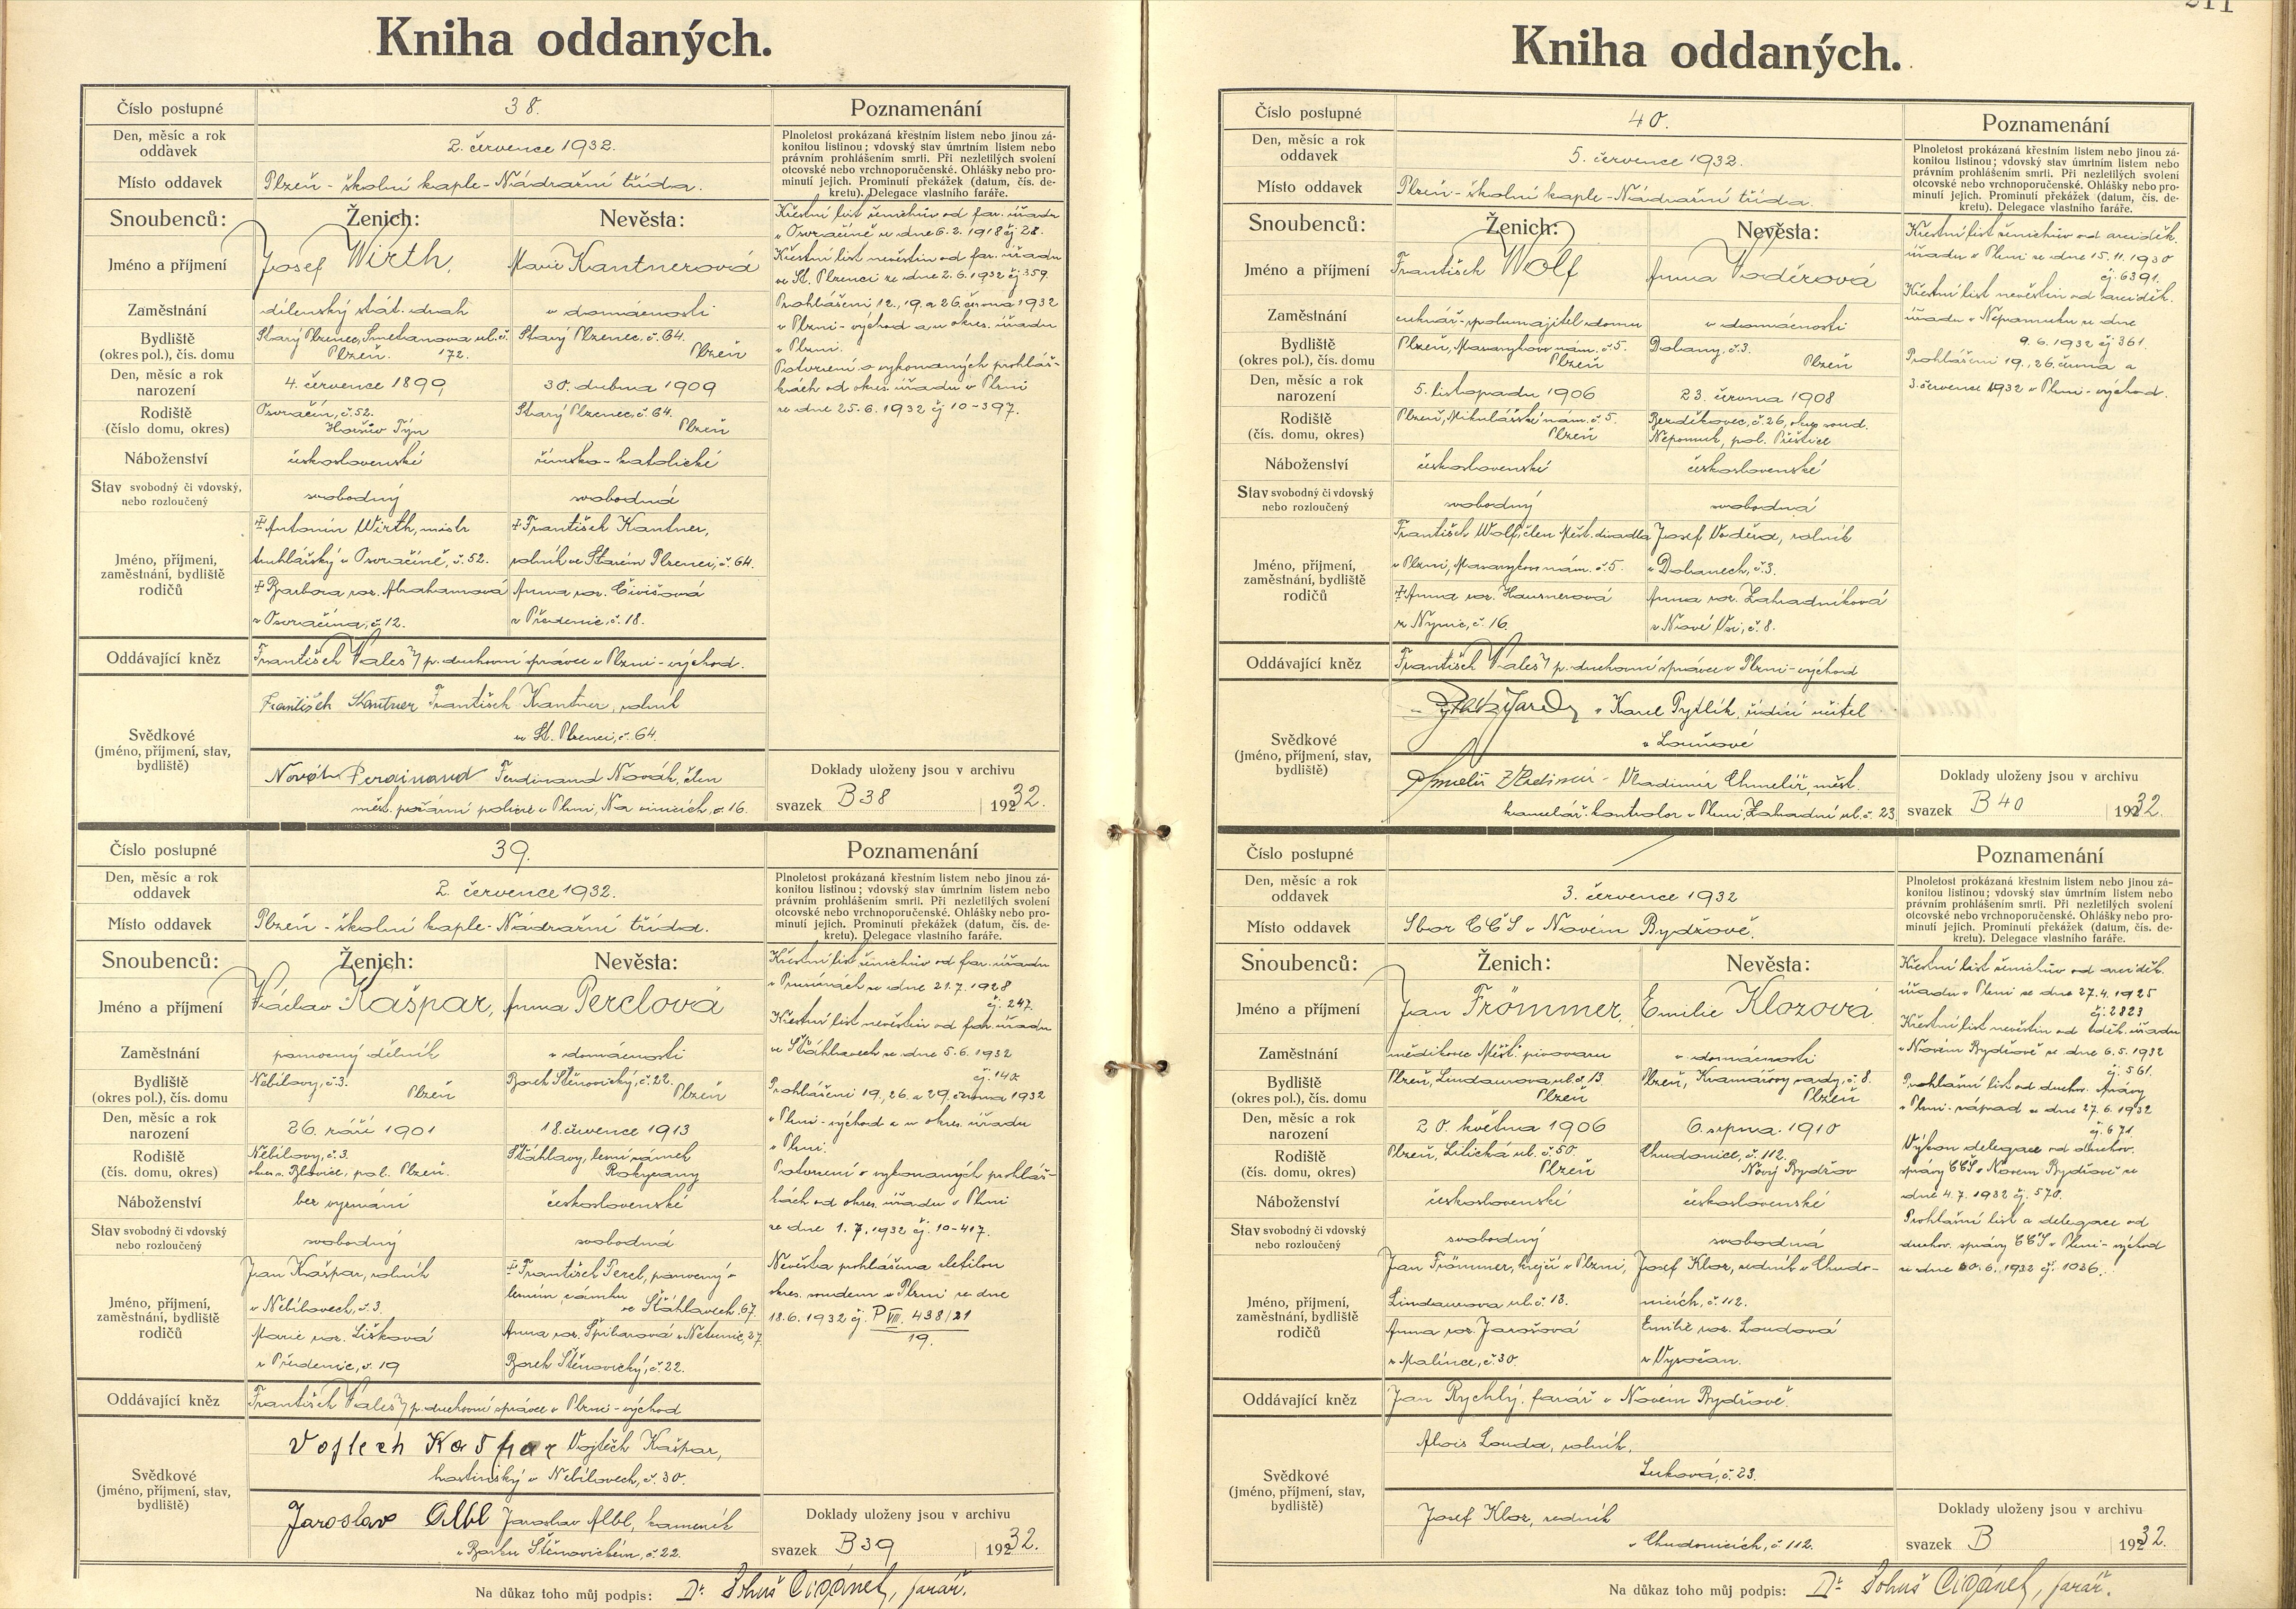 Kniha oddaných.
Číslo postupné 38. Poznamenání
Den, měsíc a rok oddavek 2. července 1932.
Plnoletost prokázaná křestním listem nebo jinou zá-
konitou listinou; vdovský stav úmrtním listem nebo
právním prohlášením smrti. Při nezletilých svolení
otcovské nebo vrchnoporučenské. Ohlášky nebo pro-
minutí jejich. Prominutí překážek (datum, čís. de-
kretu). Delegace vlastního faráře.
Místo oddavek Plzeň - školní kaple - Nádražní třída.
Snoubenců: Ženich: Nevěsta:
Jméno a příjmení Josef Wirth, Marie Kantnerová
Zaměstnání dílenský stát. drah v domácnosti
Bydliště (okres pol.), čís. domu Starý Plzenec, Smetanova ul. č. 172. Plzeň Starý Plzenec, č. 64. Plzeň
Den, měsíc a rok narození 4. července 1899 30. dubna 1909
Rodiště (číslo domu, okres) Osvračín, č. 52. Horšův Týn Starý Plzenec, č. 64. Plzeň
Náboženství československé římsko-katolické
Stav svobodný či vdovský, nebo rozloučený svobodný svobodná
Jméno, příjmení, zaměstnání, bydliště rodičů
‡ Antonín Wirth, mistr
truhlářský v Osvračíně, č. 52.
‡ Barbora roz. Abrahamová
z Osvračína, č. 12.
‡ František Kantner,
rolník ve Starém Plzenci, č. 64.
Anna roz. Čivišová
z Předenic, č. 18.
Křestní list ženichův od far. úřadu
v Osvračíně ze dne 6. 2. 1918 čj 28.
Křestní list nevěstin od far. úřadu
ve St. Plzenci ze dne 2. 6. 1932 čj 359.
Prohlášeni 12., 19. a 26. června 1932
v Plzni - východ a u okres. úřadu
v Plzni.
Potvrzení o vykonaných prohláš-
kách od okres. úřadu v Plzni
ze dne 25. 6. 1932 čj 10-397.
Oddávající kněz František Valeš p. duchovní správce v Plzni - východ.
Svědkové (jméno, příjmení, stav, bydliště)
František Kantner František Kantner, rolník
ve St. Plzenci, č. 64.
Novák Ferdinand Ferdinand Novák, člen
měst. požární policie v Plzni, Na vinicích, č. 16.
Doklady uloženy jsou v archivu
svazek B 38 1932.
Číslo postupné 39. Poznamenání
Den, měsíc a rok oddavek 2. července 1932.
Plnoletost prokázaná křestním listem nebo jinou zá-
konitou listinou; vdovský stav úmrtním listem nebo
právním prohlášením smrti. Při nezletilých svolení
otcovské nebo vrchnoporučenské. Ohlášky nebo pro-
minutí jejich. Prominutí překážek (datum, čís. de-
kretu). Delegace vlastního faráře.
Místo oddavek Plzeň - školní kaple - Nádražní třída.
Snoubenců: Ženich: Nevěsta:
Jméno a příjmení Václav Kašpar, Anna Perclová
Zaměstnání pomocný dělník v domácnosti
Bydliště (okres pol.), čís. domu Nebílovy, č. 3. Plzeň Borek Štěnovický, č. 22. Plzeň
Den, měsíc a rok narození 26. září 1901 18. července 1913
Rodiště (čís. domu, okres) Nebílovy, č. 3. okres s. Blovice, pol. Plzeň. Šťáhlavy, lesní zámek Rokycany
Náboženství bez vyznání československé
Stav svobodný či vdovský nebo rozloučený svobodný svobodná
Jméno, příjmení, zaměstnání, bydliště rodičů
Jan Kašpar, rolník
v Nebílovech, č. 3.
Marie roz. Lišková
z Předenic, č. 19
‡ František Percl, pomocný v
lesním zámku ve Šťáhlavech 67.
Anna roz. Špilarová z Netunic, 27
Borek Štěnovický, č. 22.
Křestní list ženichův od far. úřadu
v Prusinách ze dne 21. 7. 1928
čj. 247.
Křestní list nevěstin od far. úřadu
ve Šťáhlavech ze dne 5. 6. 1932
čj. 140.
Prohlášeni 19., 26. a 29. června 1932
v Plzni - východ a u okres. úřadu
v Plzni.
Potvrzení o vykonaných prohláš-
kách od okres. úřadu v Plzni
ze dne 1. 7. 1932 čj. 10-417.
Nevěsta prohlášena zletilou
okres. soudem v Plzni ze dne
18. 6. 1932 čj. P VIII. 438/21
19.
Oddávající kněz František Valeš p. duchovní správce v Plzni - východ
Svědkové (jméno, příjmení, stav, bydliště)
Vojtech Kašpar Vojtěch Kašpar,
hostinský v Nebílovech, č. 30.
Jaroslav Albl Jaroslav Albl, kameník
v Borku Štěnovickém, č. 22.
Doklady uloženy jsou v archivu
svazek B 39 1932.
Na důkaz toho můj podpis: Dr. Lohuš Cigánek, farář.
211
Kniha oddaných.
Číslo postupné 40. Poznamenání
Den, měsíc a rok oddavek 5. července 1932.
Plnoletost prokázaná křestním listem nebo jinou zá-
konitou listinou; vdovský stav úmrtním listem nebo
právním prohlášením smrti. Při nezletilých svolení
otcovské nebo vrchnoporučenské. Ohlášky nebo pro-
minutí jejich. Prominutí překážek (datum, čís. de-
kretu). Delegace vlastního faráře.
Místo oddavek Plzeň - školní kaple - Nádražní třída.
Snoubenců: Ženich: Nevěsta:
Jméno a příjmení František Wolf Anna Voděrová
Zaměstnání cukrář - spolumajitel domu v domácnosti
Bydliště (okres pol.), čís. domu Plzeň, Masarykovo nám. č. 5. Plzeň Dobany, č. 3. Plzeň
Den, měsíc a rok narození 5. listopadu 1906 23. června 1908
Rodiště (čís. domu, okres) Plzeň, Mikulášské nám. č. 5. Plzeň Bezděkovec, č. 26, okres soud. Nepomuk, pol. Přeštice
Náboženství československé československé
Stav svobodný či vdovský nebo rozloučený svobodný svobodná
Jméno, příjmení, zaměstnání, bydliště rodičů
František Wolf, člen Měst. divadla
v Plzni, Masarykovo nám. č. 5.
‡ Anna roz. Hausnerová
z Nýřan, č. 16.
Josef Voděra, rolník
v Dobanech, č. 3.
Anna roz. Zahradníková
z Nové Vsi, č. 8.
Křestní list ženichův od arciděk.
úřadu v Plzni ze dne 15. 11. 1930
čj. 6391.
Křestní list nevěstin od arciděk.
úřadu v Nepomuku ze dne
9. 6. 1932 čj 361.
Prohlášeni 19., 26. června a
3. července 1932 v Plzni - východ.
Oddávající kněz František Valeš p. duchovní správce v Plzni - východ
Svědkové (jméno, příjmení, stav, bydliště)
Karel Pytlík, řídící učitel
v Louňové
Chmelíř Vladimír - Vladimír Chmelíř, měst.
kancelář. kontrolor v Plzni, Zahradní ul. č. 23.
Doklady uloženy jsou v archivu
svazek B 40 1932.
Číslo postupné / Poznamenání
Den, měsíc a rok oddavek 3. července 1932
Plnoletost prokázaná křestním listem nebo jinou zá-
konitou listinou; vdovský stav úmrtním listem nebo
právním prohlášením smrti. Při nezletilých svolení
otcovské nebo vrchnoporučenské. Ohlášky nebo pro-
minutí jejich. Prominutí překážek (datum, čís. de-
kretu). Delegace vlastního faráře.
Místo oddavek Sbor CČS v Novém Bydžově.
Snoubenců: Ženich: Nevěsta:
Jméno a příjmení Jan Frömmer, Emilie Klozová
Zaměstnání mědikovec Měšť. pivovaru v domácnosti
Bydliště (okres pol.), čís. domu Plzeň, Lindauerova ul. č. 13. Plzeň Plzeň, Kramářovy sady, č. 8. Plzeň
Den, měsíc a rok narození 20. května 1906 6. srpna 1910
Rodiště (čís. domu, okres) Plzeň, Lilická ul. č. 50. Plzeň Chudonice, č. 112. Nový Bydžov
Náboženství československé československé
Stav svobodný či vdovský nebo rozloučený svobodný svobodná
Jméno, příjmení, zaměstnání, bydliště rodičů
Jan Frömmer, krejčí v Plzni,
Lindauerova ul. č. 13.
Anna roz. Jarošová
z Malince, č. 30.
Josef Kloz, sedník v Chudo-
nicích, č. 112.
Emilie roz. Loudová
z Vysočan.
Křestní list ženichův od arciděk.
úřadu v Plzni ze dne 27. 4. 1925
čj. 2823
Křestní list nevěstin od děk. úřadu
v Novém Bydžově ze dne 6. 5. 1932
čj. 561.
Prohlašní list od duchov. správy
v Plzni - západ ze dne 27. 6. 1932
čj. 671.
Výkon delegace od duchov.
správy CČS v Novém Bydžově ze
dne 4. 7. 1932 čj. 570.
Prohlašní list a delegace od
duchov. správy CČS v Plzni - východ
ze dne 30. 6. 1932 čj. 1036.
Oddávající kněz Jan Rychlý, farář v Novém Bydžově.
Svědkové (jméno, příjmení, stav, bydliště)
Alois Louda, rolník,
Luková, č. 23.
Josef Kloz, sedník
v Chudonicích, č. 112.
Doklady uloženy jsou v archivu
svazek B 1932.
Na důkaz toho můj podpis: Dr. Lohuš Cigánek, farář.